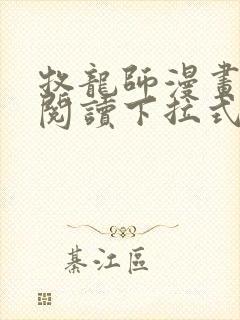 牧龍師漫畫
閱讀下拉式
綦江區